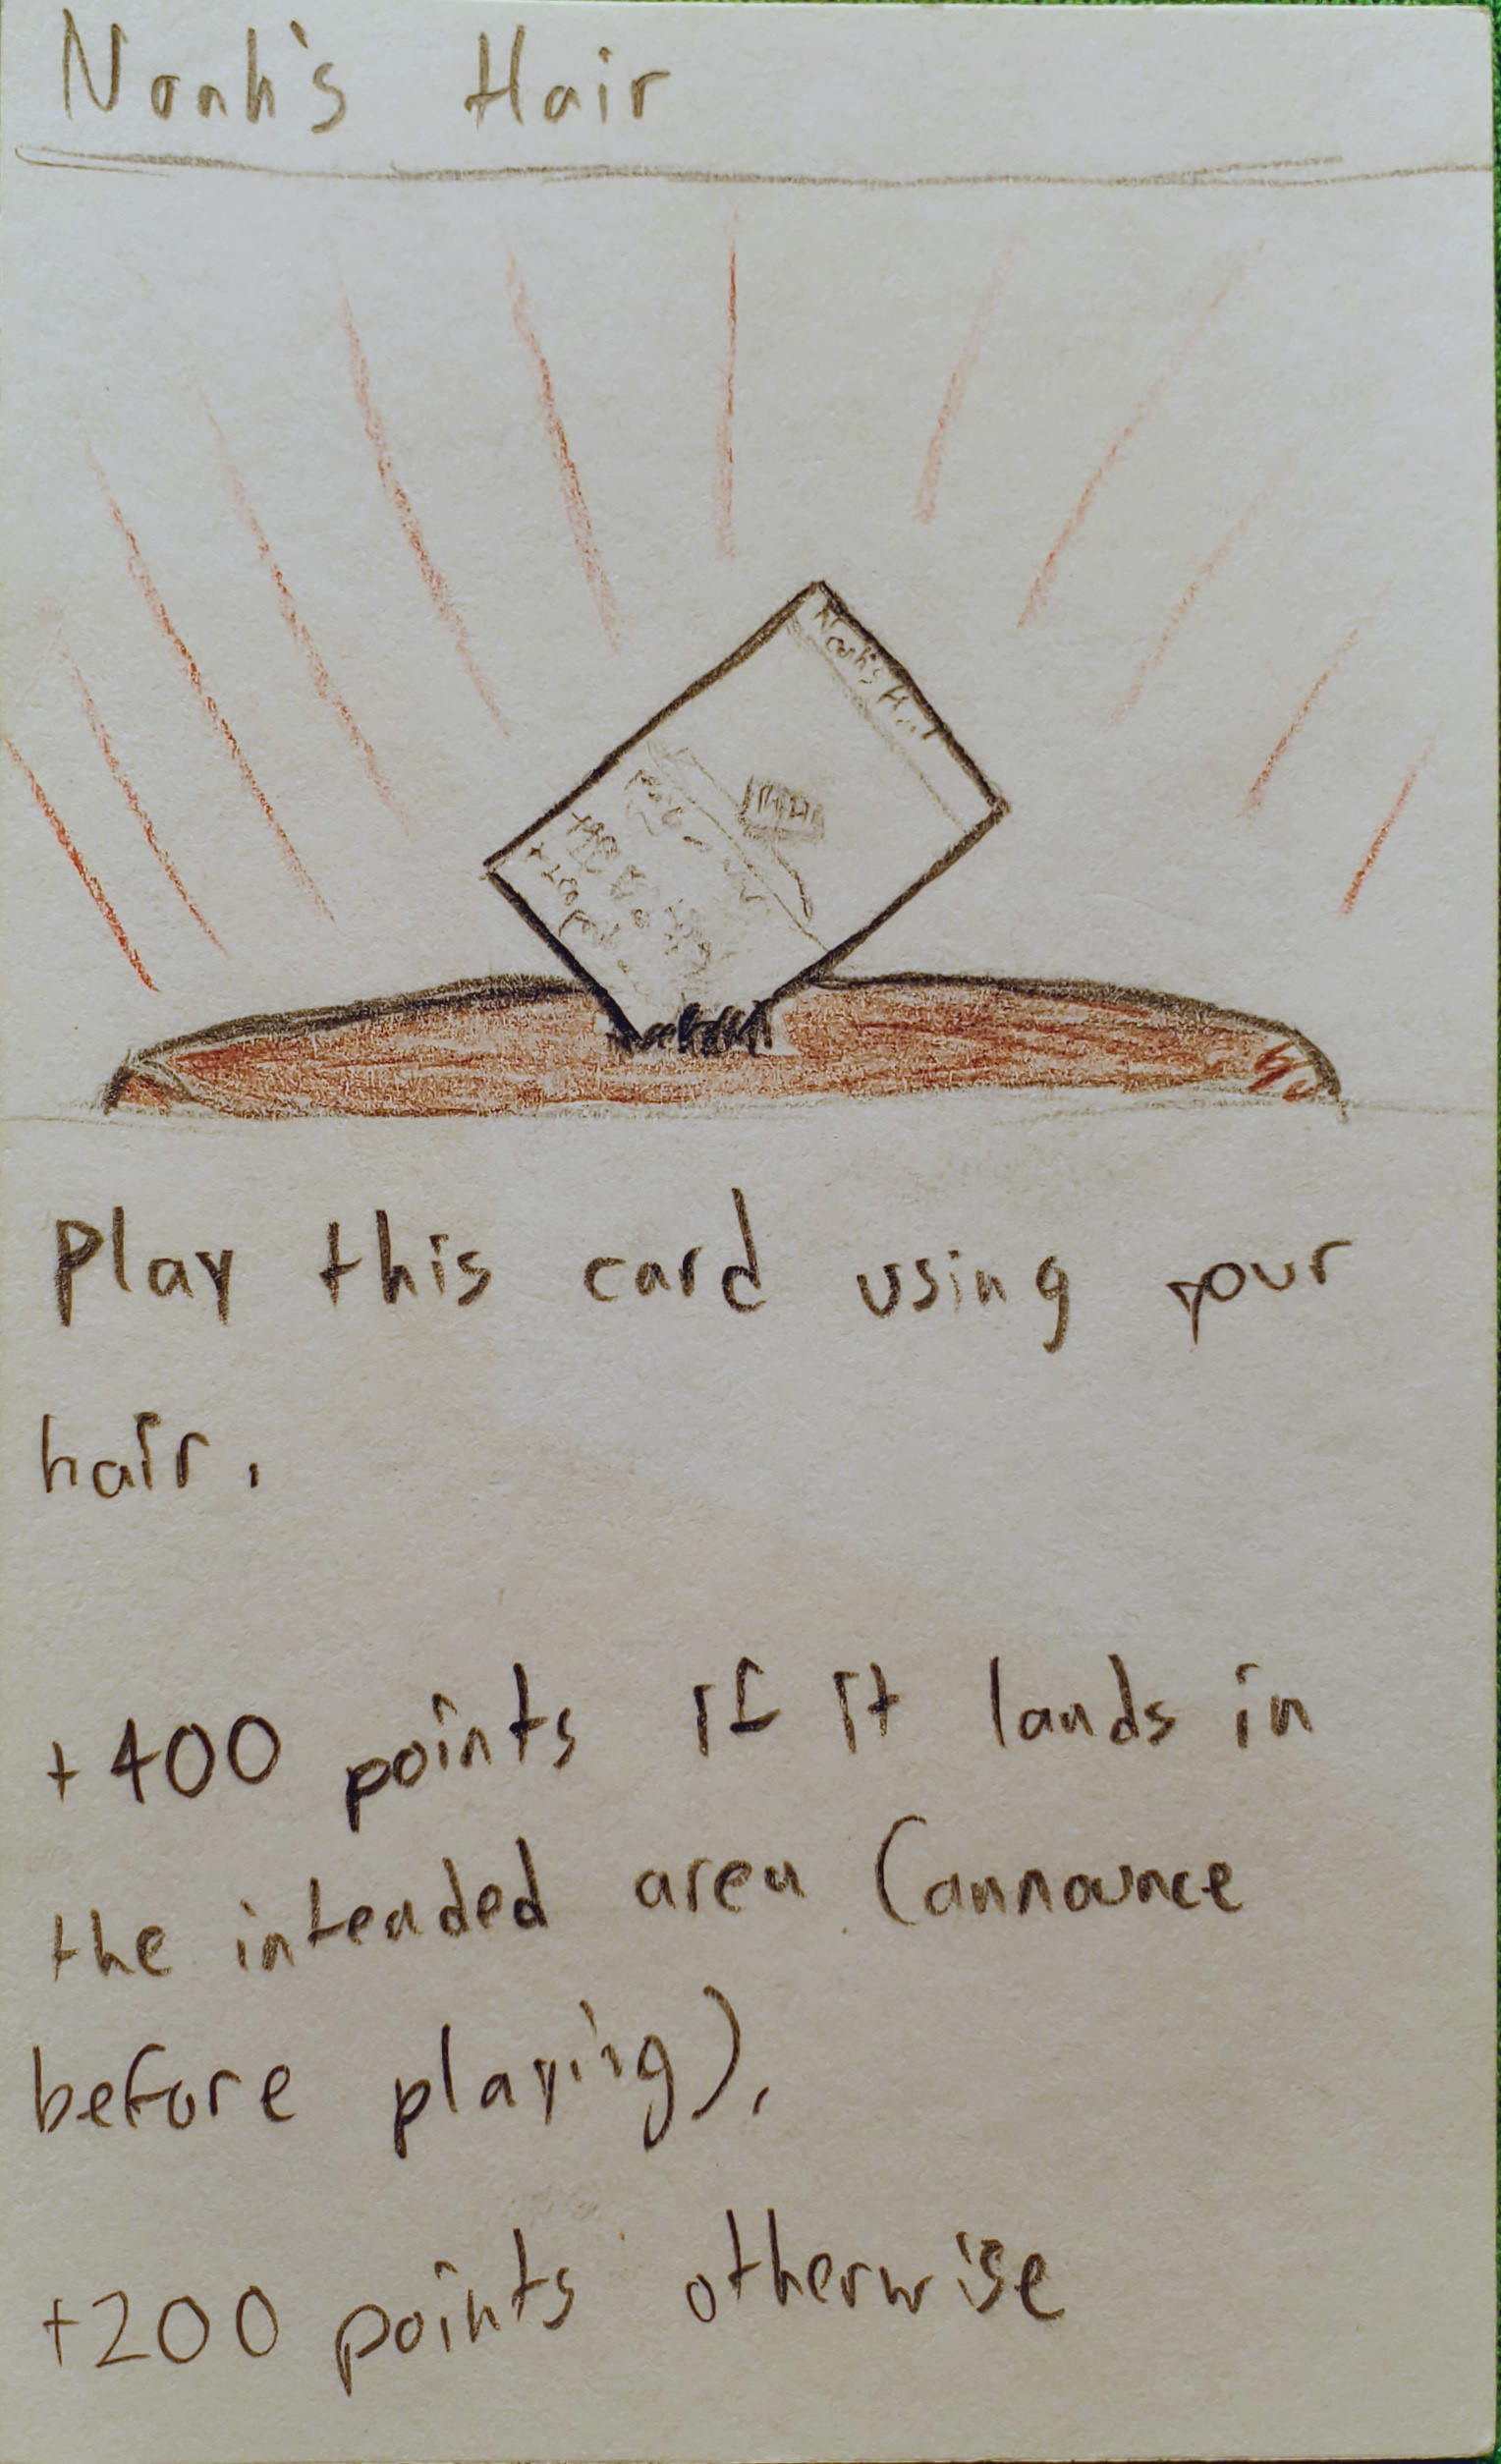 Noah's Hair
Noah's Hair
Play this card using your
hair.
+400 points if it lands in
the intended area (announce
before playing),
+200 points otherwise